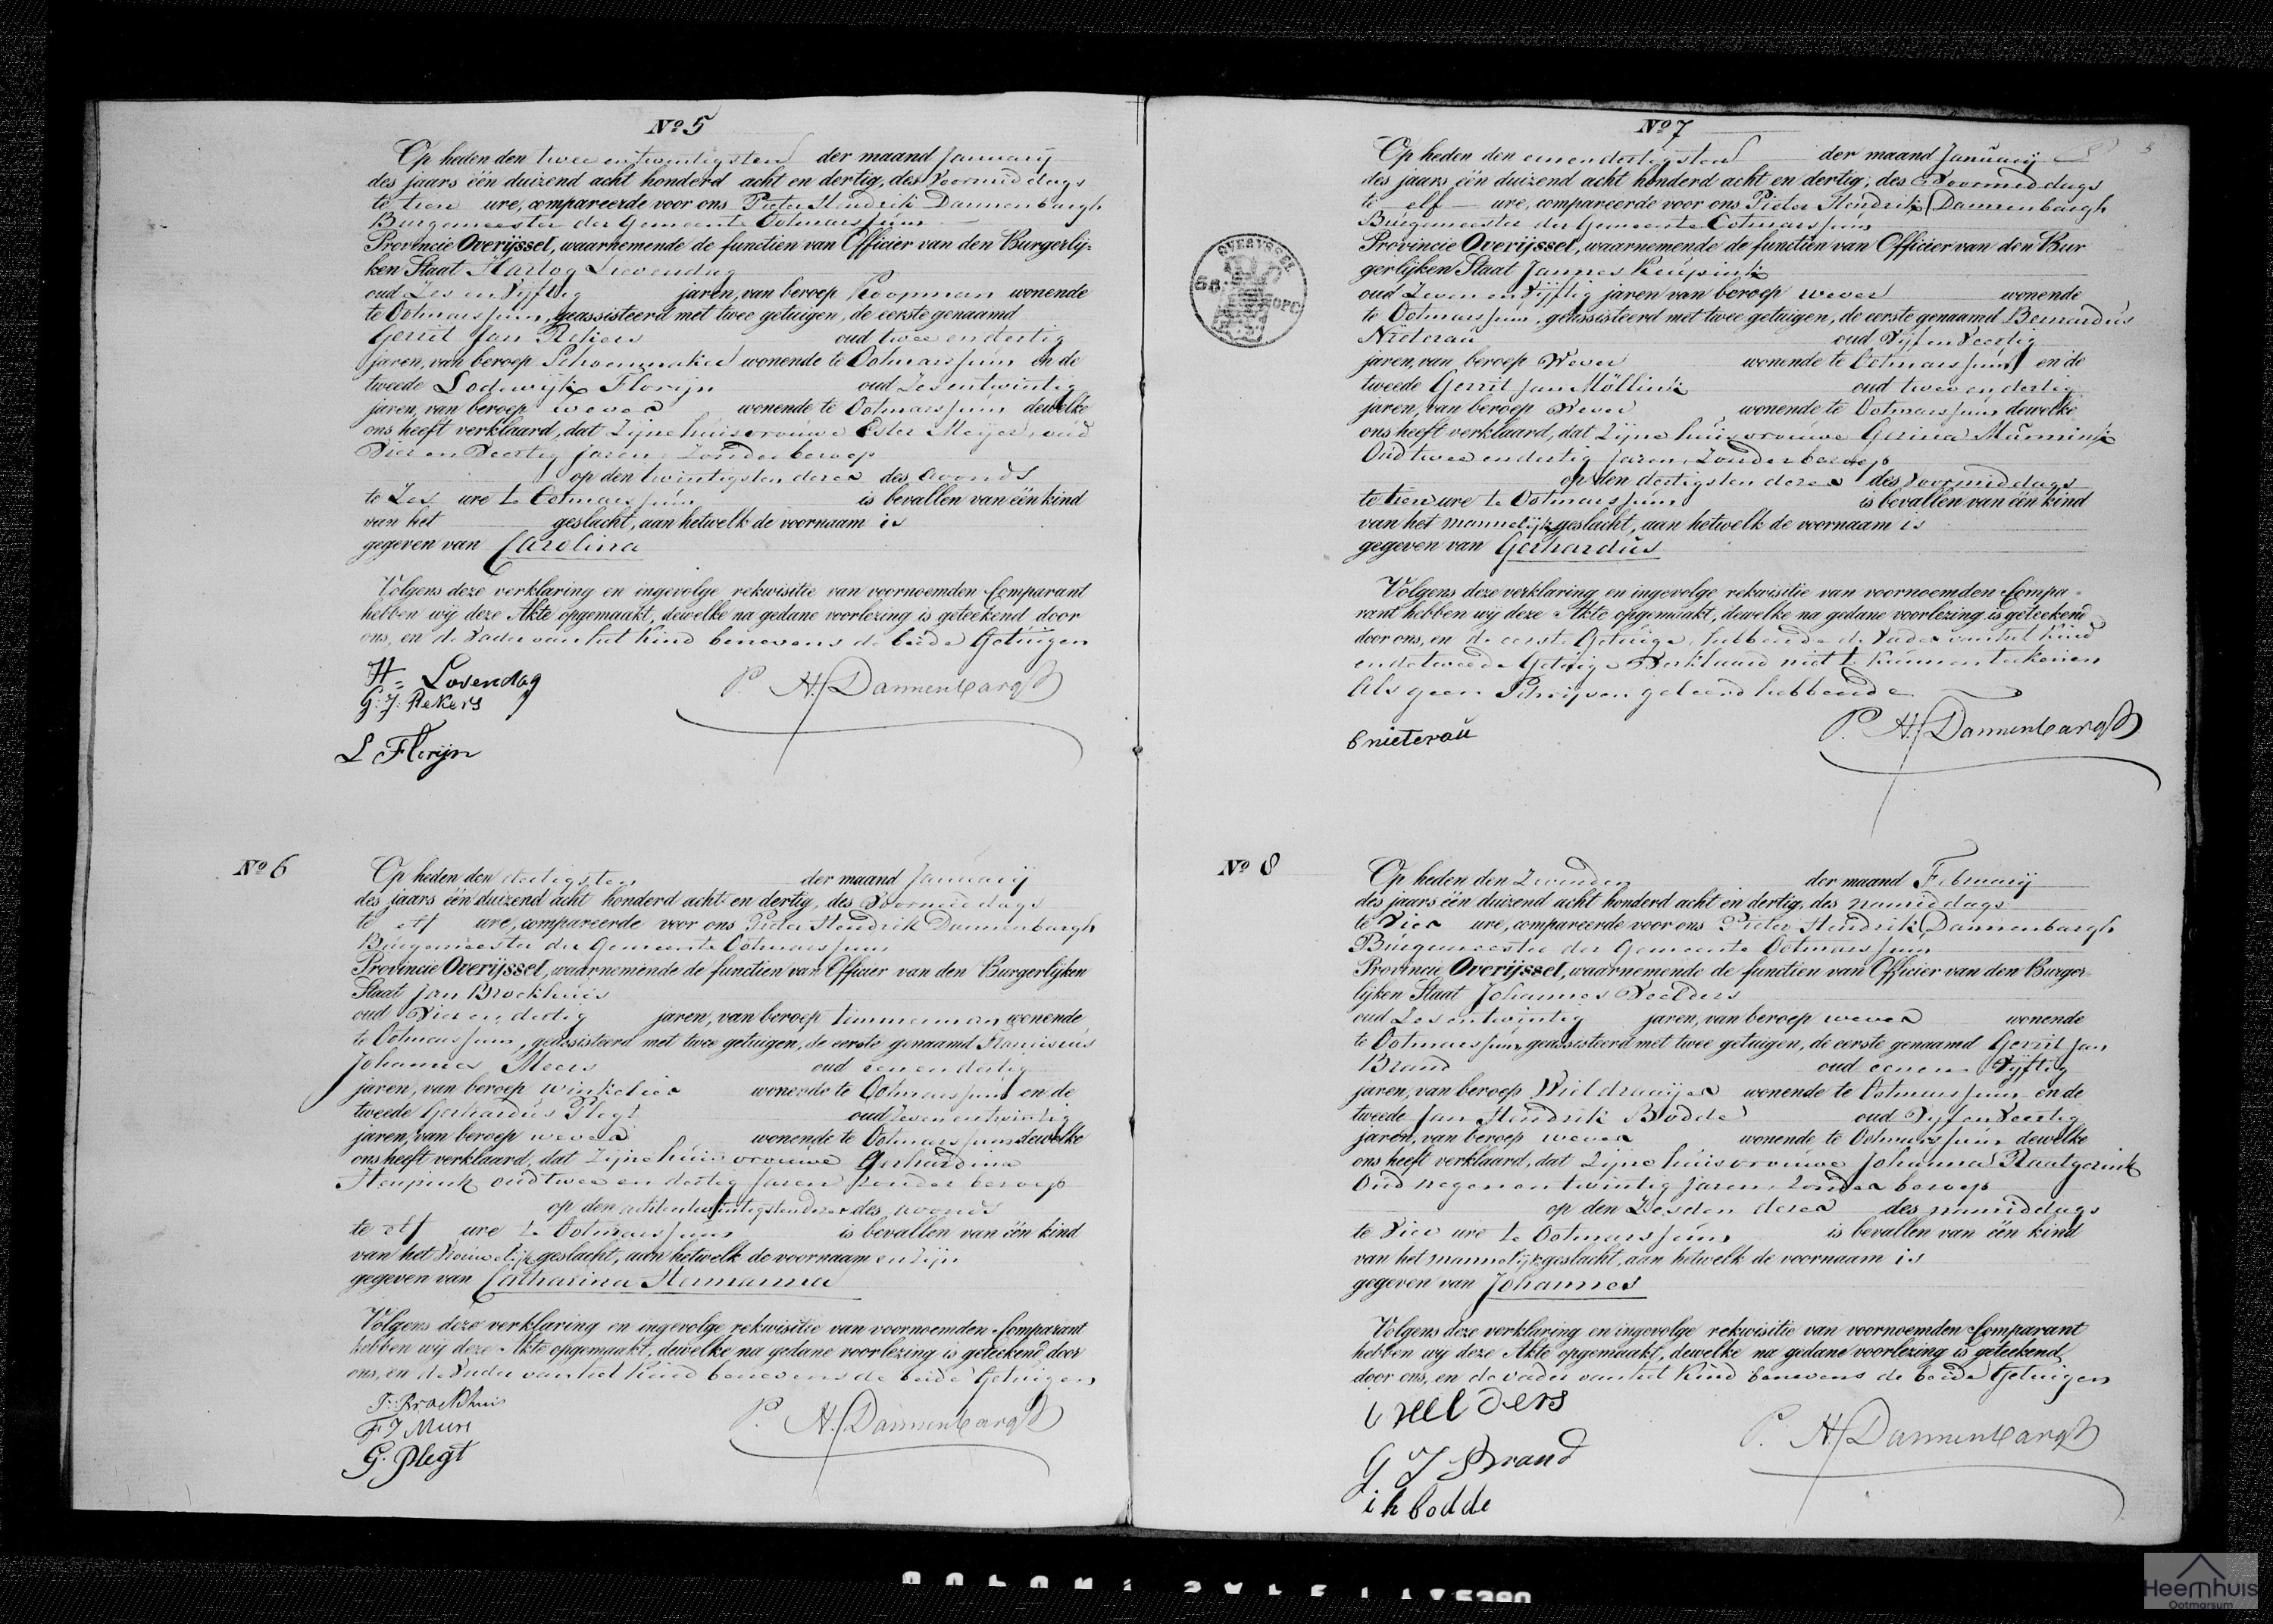 Nº 5
Op heden den twee en twintigsten der maand Januarij
des jaars één duizend acht honderd acht en dertig, des Voormiddags
te tien ure, compareerde voor ons Pieter Hendrik Dannenbargh
Burgemeester der Gemeente Ootmarssum
Provincie Overijssel, waarnemende de functien van Officier van den Burgerlij-
ken Staat Hartog Lievendag
oud Zes en Vijftig jaren, van beroep Koopman wonende
te Ootmarssum, geassisteerd met twee getuigen, de eerste genaamd
Gerrit Jan Rekers oud twee en dertig
jaren, van beroep Schoenmaker wonende te Ootmarssum en de
tweede Lodewijk Florijn oud Zes en twintig
jaren, van beroep wever wonende te Ootmarssum dewelke
ons heeft verklaard, dat Zijne huisvrouwe Ester Meijer, oud
Vier en Veertig Jaren, Zonder beroep
op den twintigsten dezer des avonds
te Zes ure te Ootmarssum is bevallen van één kind
van het geslacht, aan hetwelk de voornaam is
gegeven van Carolina
Volgens deze verklaring en ingevolge rekwisitie van voornoemden Comparant
hebben wij deze Akte opgemaakt, dewelke na gedane voorlezing is geteekend door
ons, en de Vader van het Kind benevens de beide Getuigen
H= Lovendag
P. H. Dannenbargh
G: J: Rekers
L Florijn
Nº 6
Op heden den dertigsten der maand Januarij
des jaars één duizend acht honderd acht en dertig, des Voormiddags
te elf ure, compareerde voor ons Pieter Hendrik Dannenbargh
Burgemeester der Gemeente Ootmarssum
Provincie Overijssel, waarnemende de functien van Officier van den Burgerlijken
Staat Jan Brockhuis
oud Vier en dertig jaren, van beroep timmerman wonende
te Ootmarssum, geassisteerd met twee getuigen, de eerste genaamd Franciscus
Johannes Meers oud een en dertig
jaren, van beroep winkelier wonende te Ootmarssum en de
tweede Gerhardus Plegt oud Zeven en twintig
jaren, van beroep wever wonende te Ootmarssum dewelke
ons heeft verklaard, dat Zijne huisvrouwe Gerhardina
Heupink oud twee en dertig Jaren Zonder beroep
op den acht en twintigsten dezer des avonds
te elf ure te Ootmarssum is bevallen van één kind
van het Vrouwelijk geslacht, aan hetwelk de voornaam en Zijn
gegeven van Catharina Hermanna
Volgens deze verklaring en ingevolge rekwisitie van voornoemden Comparant
hebben wij deze Akte opgemaakt, dewelke na gedane voorlezing is geteekend door
ons, en de Vader van het Kind benevens de beide Getuigen
J: Brockhuis
P. H. Dannenbargh
F J Murs
G. Plegt
Nº 7
Op heden den een en dertigsten der maand Januarij
des jaars één duizend acht honderd acht en dertig, des Voormiddags
te elf ure, compareerde voor ons Pieter Hendrik Dannenbargh
Burgemeester der Gemeente Ootmarssum
Provincie Overijssel, waarnemende de functien van Officier van den Bur
gerlijken Staat Jannes Keupink
oud Zeven en Vijftig jaren van beroep wever wonende
te Ootmarssum, geassisteerd met twee getuigen, de eerste genaamd Bernardus
Nieterau oud Vijf en Veertig
jaren, van beroep Wever wonende te Ootmarssum en de
tweede Gerrit Jan Möllink oud twee en dertig
jaren, van beroep Wever wonende te Ootmarssum dewelke
ons heeft verklaard, dat Zijne huisvrouwe Gerina Marmink
Oud twee en dertig Jaren, Zonder beroep
op den dertigsten dezer des Voormiddags
te tien ure te Ootmarssum is bevallen van één kind
van het mannelijk geslacht, aan hetwelk de voornaam is
gegeven van Gerhardus
Volgens deze verklaring en ingevolge rekwisitie van voornoemden Compa-
rant hebben wij deze Akte opgemaakt, dewelke na gedane voorlezing is geteekend
door ons, en de eerste Getuige, hebbende de Vader van het Kind
en de tweede Getuige Verklaard niet te kunnen teekenen
Als geen Schrijven geleerd hebbende
P. H. Dannenbargh
b nieterau
OVERYSSEL
Nº 8
Op heden den Zevenden der maand Februarij
des jaars één duizend acht honderd acht en dertig, des namiddags
te Vier ure, compareerde voor ons Pieter Hendrik Dannenbargh
Burgemeester der Gemeente Ootmarssum
Provincie Overijssel, waarnemende de functien van Officier van den Burger-
lijken Staat Johannes Veelders
oud Zes en twintig jaren, van beroep wever wonende
te Ootmarssum, geassisteerd met twee getuigen, de eerste genaamd Gerrit Jan
Brand oud een en Vijftig
jaren, van beroep Wieldraaijer wonende te Ootmarssum en de
tweede Jan Hendrik Bodde oud Vijf en Veertig
jaren, van beroep wever wonende te Ootmarssum dewelke
ons heeft verklaard, dat Zijne huisvrouwe Johanna Raatgerink
Oud negen en twintig Jaren, Zonder beroep
op den Zesden dezer des namiddags
te Vier ure te Ootmarssum is bevallen van één kind
van het mannelijk geslacht, aan hetwelk de voornaam is
gegeven van Johannes
Volgens deze verklaring en ingevolge rekwisitie van voornoemden Comparant
hebben wij deze Akte opgemaakt, dewelke na gedane voorlezing is geteekend
door ons, en de vader van het Kind benevens de beide Getuigen
P. H. Dannenbargh
G J Brand
i h bodde
Heemhuis
Ootmarsum